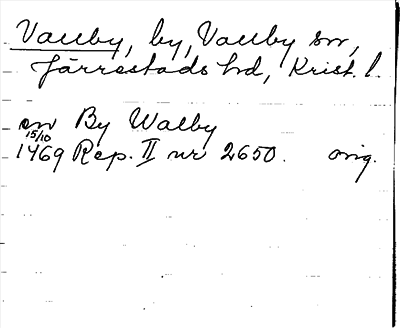 Vallby, by, Vallby sn,
Järrestads hd, Krist. l.
sn By Walby
15/10
1469 Rep. II nr 2650. orig.